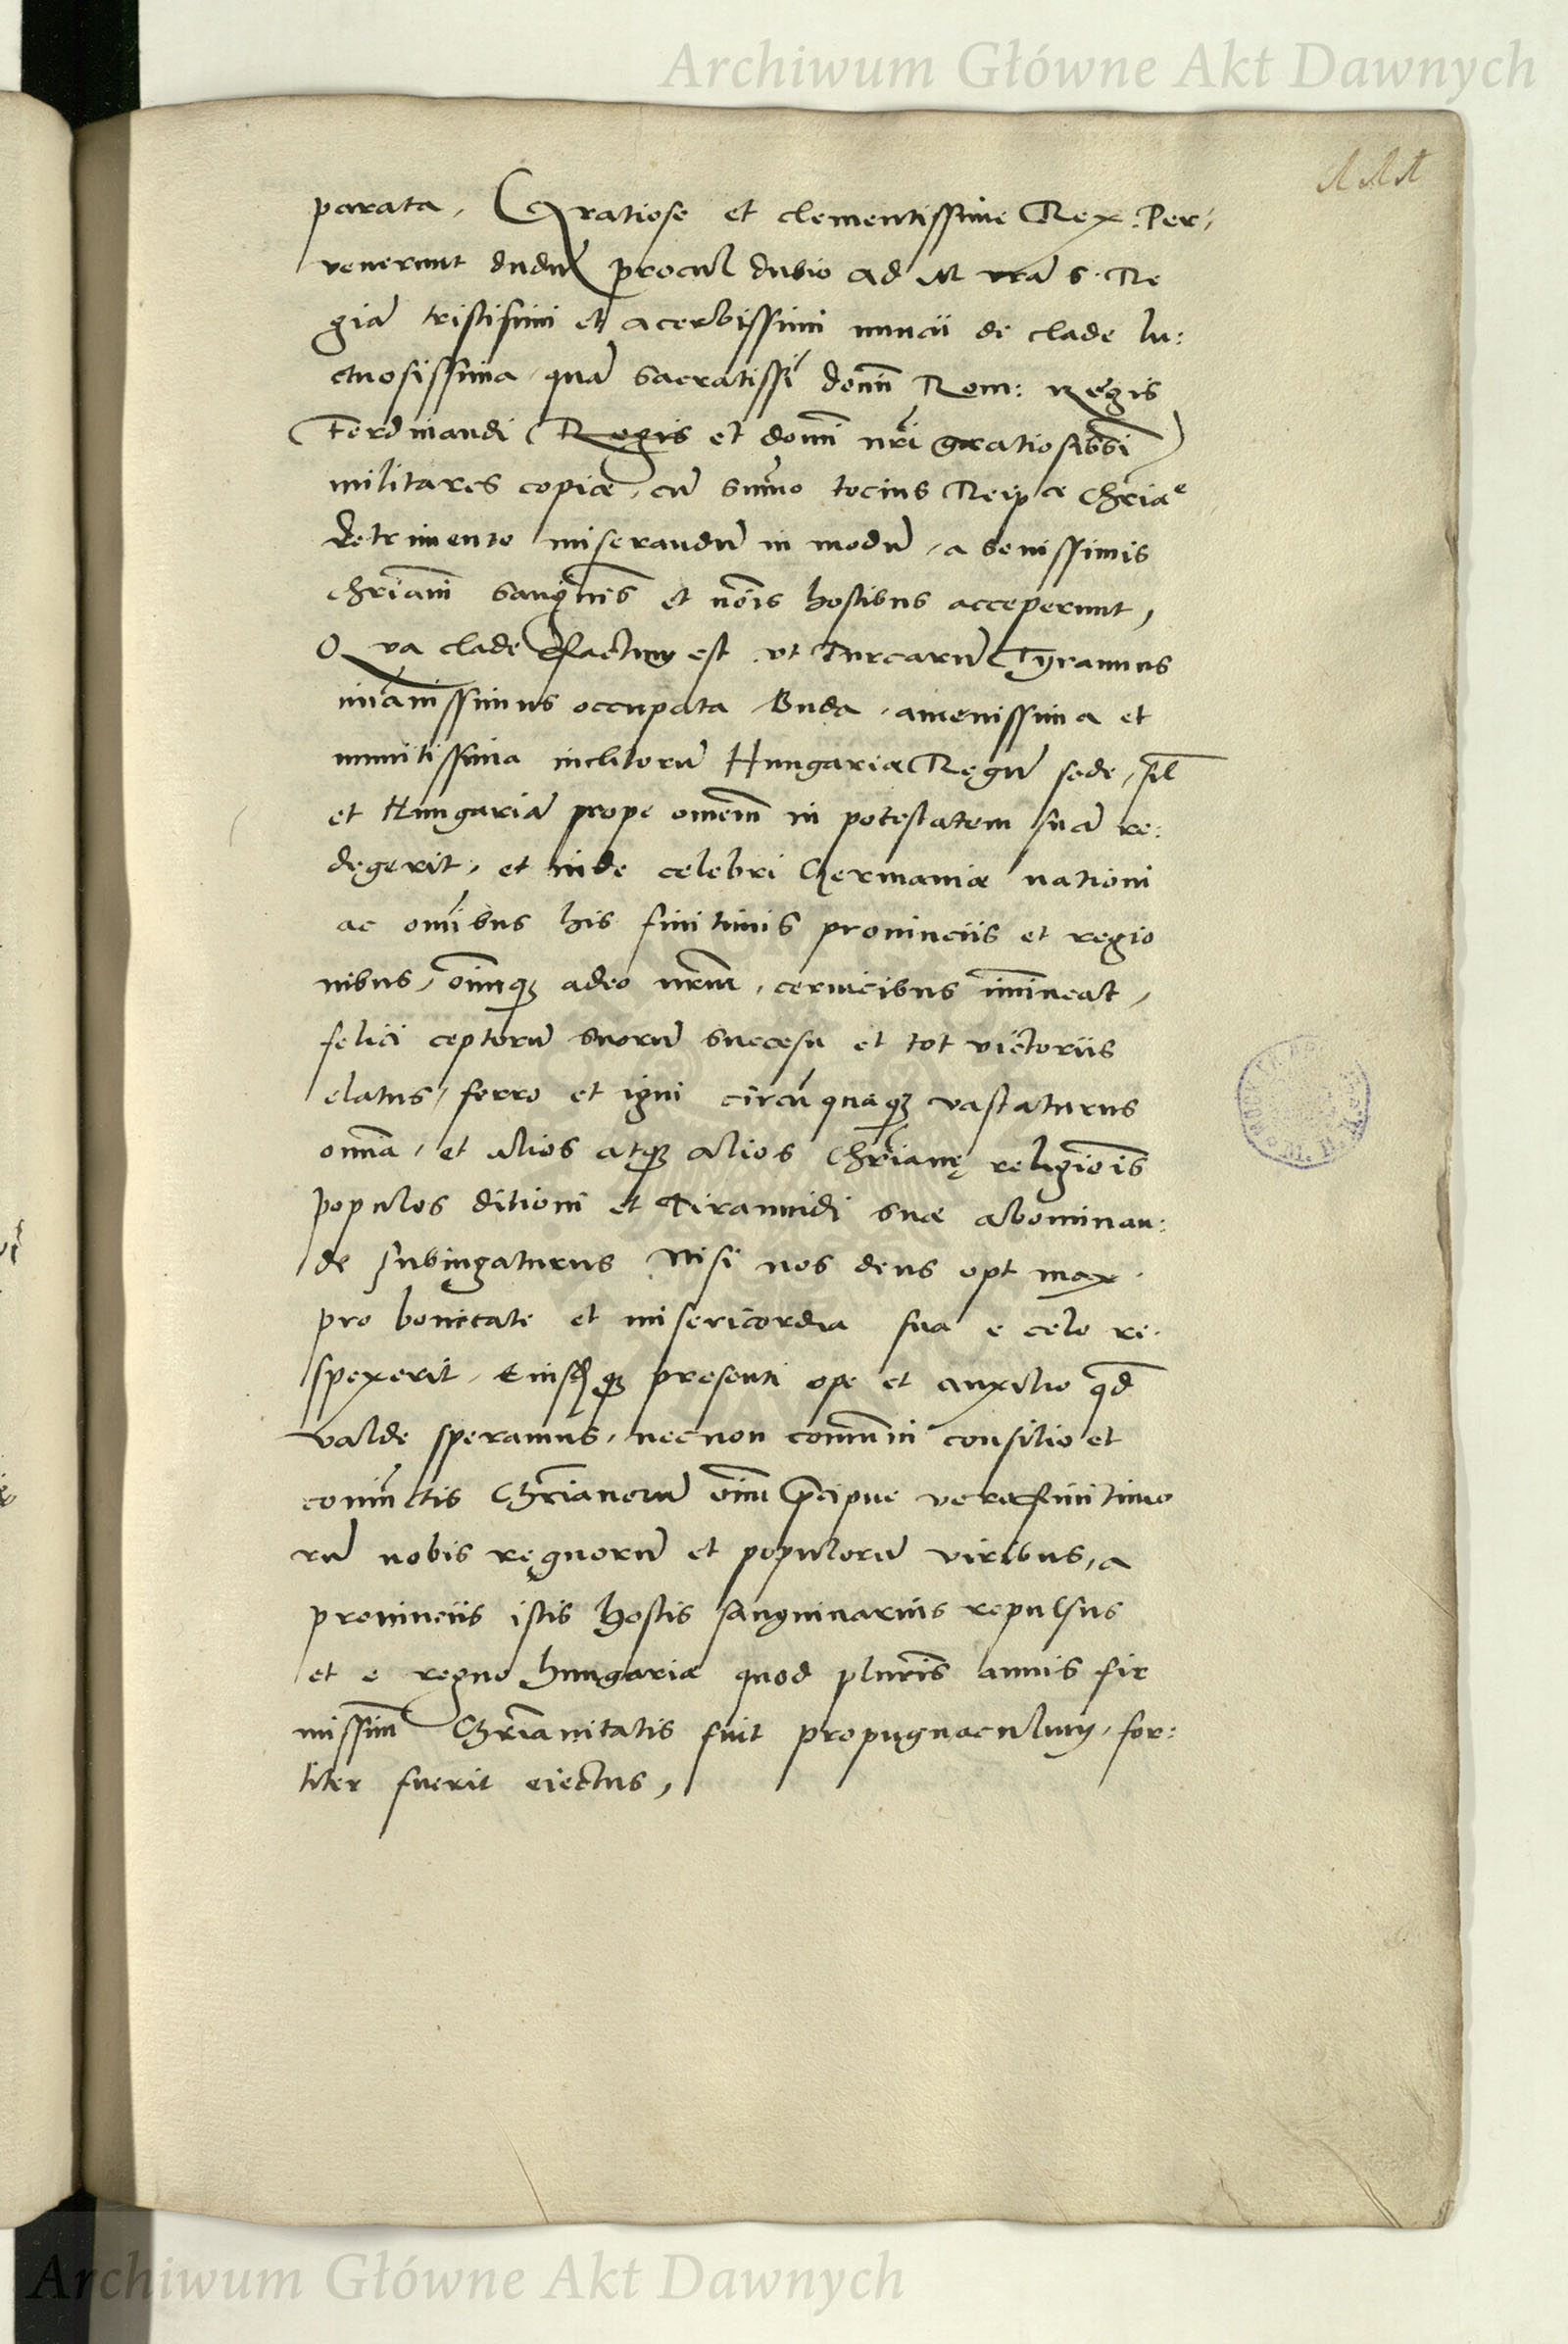 Archiwum Główne Akt Dawnych
parata, Gratiose et clementissime Rex. Per,
venerunt dudū procul dubio ad M vrā S. Re
giā tristissimi et acerbissimi nuncii de clade lu:
ctuosissima, quā Sacratissi domī Rom: Regis
Ferdinandi (Regis et domī nr̄i gratiosissi)
militares copiae, cū summo tocius Reip ce Chr̄iae
detrimento miserandū in modū, a sevissimis
chr̄iani sanguinis et nōis hostibus acceperunt,
Qua clade factum est vt Turcarū Tyrannus
im̄anissimus occupata Buda, amenissima et
munitissima inclitorū Hungariae Regū sede, sil
et Hungariā prope omnem in potestatem suā re:
degerit, et inde celebri Germaniae nationi
ac om̄ibus his finitimis prouinciis et regio
nibus, oīmq adeo nr̄um, ceruicibus im̄ineat,
felici ceptorū suorū succesu et tot victoriis
elatus, ferro et igni circūquaq vastaturus
omnia, et alios atq alios Chr̄ianę religiōis
populos ditioni et Tirannidi suae abominan:
de subiugaturus Nisi nos deus opt max.
pro bonitate et misericordia sua e celo re.
spexerit, Eiusq presenti ope et auxilio qd
valde speramus, necnon comuni consilio et
coniūctis Chr̄ianorū oīm p̄cipue vero finitimo
rū nobis regnorū et populorū viribus, a
prouinciis istis hostis sanguinarius repulsus
et e regno hungariae quod pluris annis fir
missim̄ Chr̄ianitatis fuit propugnaculum, for:
titer fuerit eiectus,
Archiwum Główne Akt Dawnych